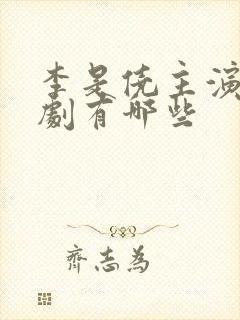 李是侥主演
劇有哪些
齊志為